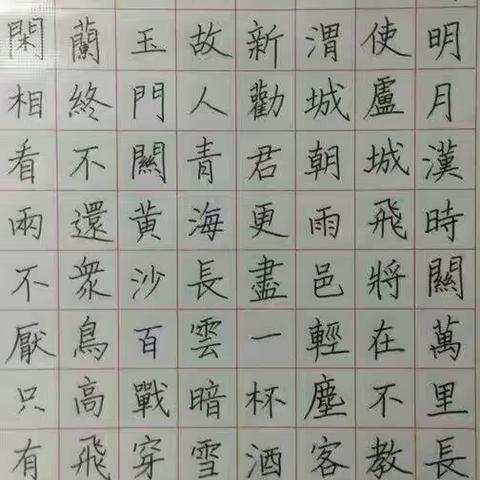 明月漢時關萬里長
使盧城飛將在不教
渭城朝雨邑輕塵客
新勸君更盡一杯酒
故人青海長雲暗雪
玉門關黃沙百戰穿
蘭終不還衆鳥高飛
閑相看兩不厭只有